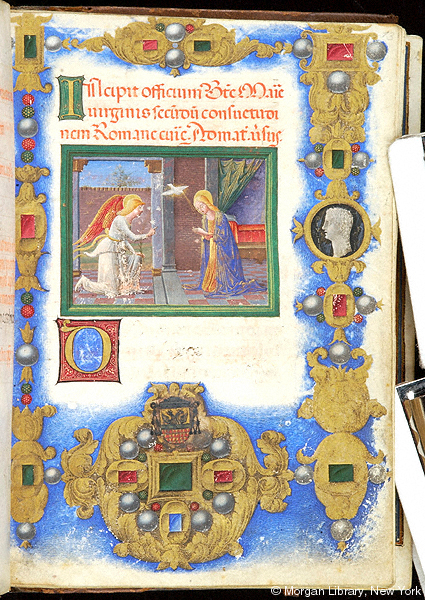 Incipit officium Bte̅ Marie
uirginis secundu̅ consuetudi
nem Romane
D
© Morgan Library, New York